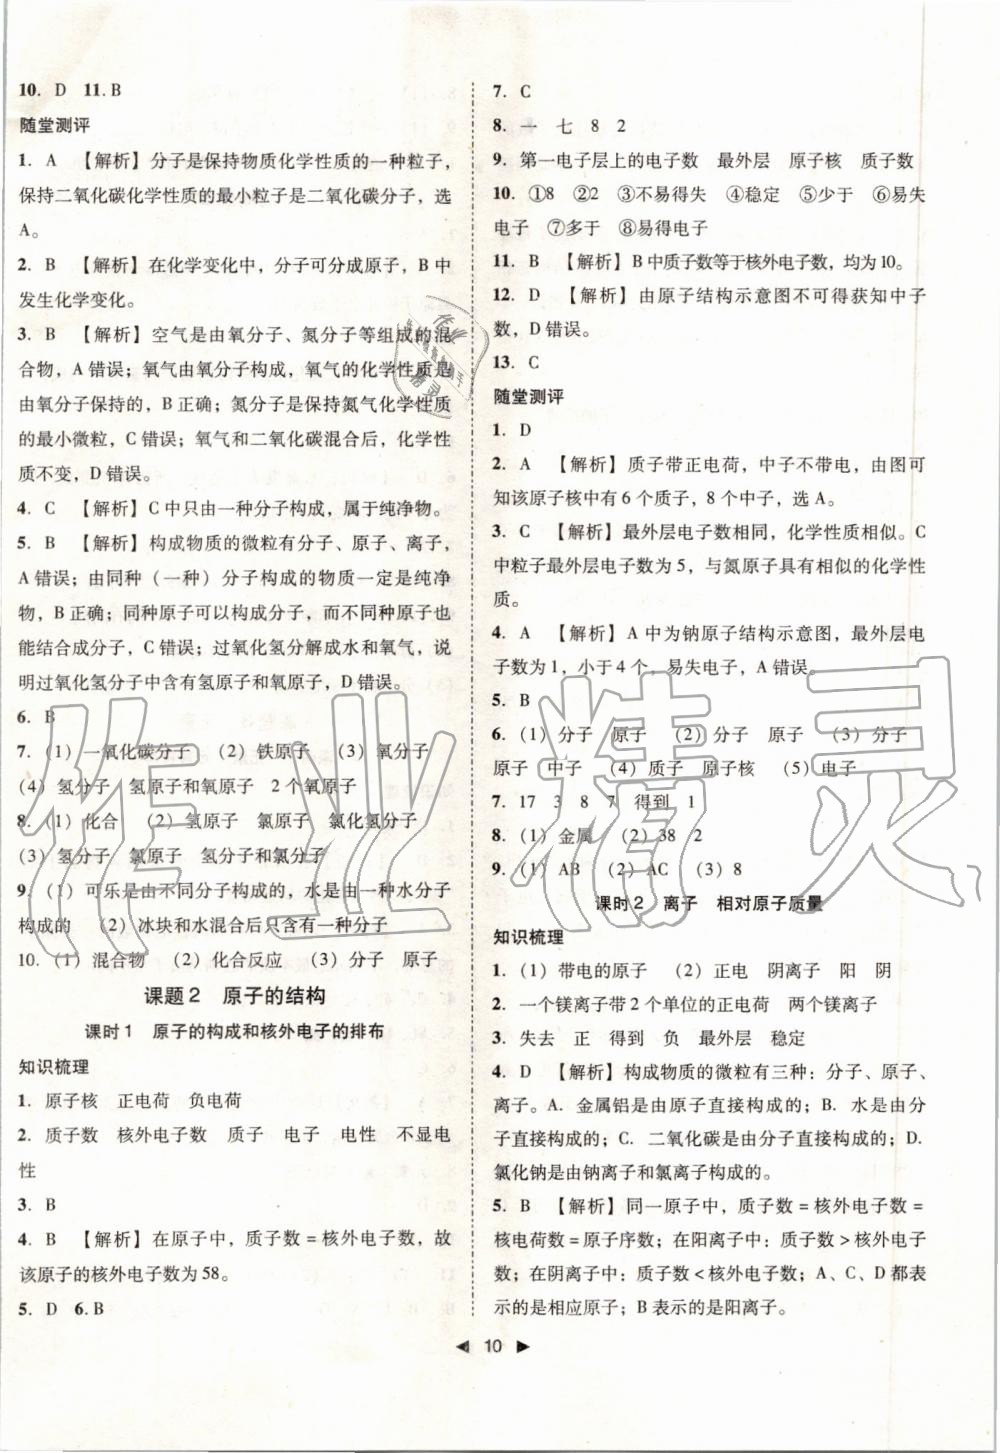 10. D 11. B
随堂测评
1. A 【解析】分子是保持物质化学性质的一种粒子，
保持二氧化碳化学性质的最小粒子是二氧化碳分子，选
A。
2. B 【解析】在化学变化中，分子可分成原子，B 中
发生化学变化。
3. B 【解析】空气是由氧分子、氮分子等组成的混
合物，A 错误；氧气由氧分子构成，氧气的化学性质是
由氧分子保持的，B 正确；氮分子是保持氮气化学性质
的最小微粒，C 错误；氧气和二氧化碳混合后，化学性
质不变，D 错误。
4. C 【解析】C 中只由一种分子构成，属于纯净物。
5. B 【解析】构成物质的微粒有分子、原子、离子，
A 错误；由同种（一种）分子构成的物质一定是纯净
物，B 正确；同种原子可以构成分子，而不同种原子也
能结合成分子，C 错误；过氧化氢分解成水和氧气，说
明过氧化氢分子中含有氢原子和氧原子，D 错误。
6. B
7.（1）一氧化碳分子 （2）铁原子 （3）氧分子
（4）氢分子 氢原子和氧原子 2 个氧原子
8.（1）化合 （2）氢原子 氯原子 氯化氢分子
（3）氢分子 氯原子 氢分子和氯分子
9.（1）可乐是由不同分子构成的，水是由一种水分子
构成的 （2）冰块和水混合后只含有一种分子
10.（1）混合物 （2）化合反应 （3）分子 原子
课题 2 原子的结构
课时 1 原子的构成和核外电子的排布
知识梳理
1. 原子核 正电荷 负电荷
2. 质子数 核外电子数 质子 电子 电性 不显电
性
3. B
4. B 【解析】在原子中，质子数 = 核外电子数，故
该原子的核外电子数为 58。
5. D 6. B
7. C
8. 一 七 8 2
9. 第一电子层上的电子数 最外层 原子核 质子数
10. ①8 ②2 ③不易得失 ④稳定 ⑤少于 ⑥易失
电子 ⑦多于 ⑧易得电子
11. B 【解析】B 中质子数等于核外电子数，均为 10。
12. D 【解析】由原子结构示意图不可得获知中子
数，D 错误。
13. C
随堂测评
1. D
2. A 【解析】质子带正电荷，中子不带电，由图可
知该原子核中有 6 个质子，8 个中子，选 A。
3. C 【解析】最外层电子数相同，化学性质相似。C
中粒子最外层电子数为 5，与氮原子具有相似的化学性
质。
4. A 【解析】A 中为钠原子结构示意图，最外层电
子数为 1，小于 4 个，易失电子，A 错误。
5. B
6.（1）分子 原子 （2）分子 原子 （3）分子
原子 中子 （4）质子 原子核 （5）电子
7. 17 3 8 7 得到 1
8.（1）金属 （2）38 2
9.（1）AB （2）AC （3）8
课时 2 离子 相对原子质量
知识梳理
1.（1）带电的原子 （2）正电 阴离子 阳 阴
2. 一个镁离子带 2 个单位的正电荷 两个镁离子
3. 失去 正 得到 负 最外层 稳定
4. D 【解析】构成物质的微粒有三种：分子、原子、
离子。A. 金属铝是由原子直接构成的；B. 水是由分
子直接构成的；C. 二氧化碳是由分子直接构成的；D.
氯化钠是由钠离子和氯离子构成的。
5. B 【解析】同一原子中，质子数 = 核外电子数 =
核电荷数 = 原子序数；在阳离子中：质子数 > 核外电子
数；在阴离子中：质子数 < 核外电子数；A、C、D 都表
示的是相应原子；B 表示的是阳离子。
10
作业精灵